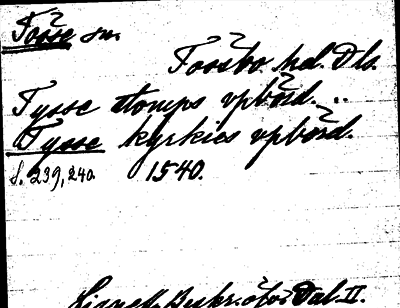 Tösse sn.
Tössbo hd. Dls.
Tysse stomps vpbörd. ..
Tysse kyrkies vpbörd.
s. 239, 240. 1540.
Lignell, Beskr. över Dal II.